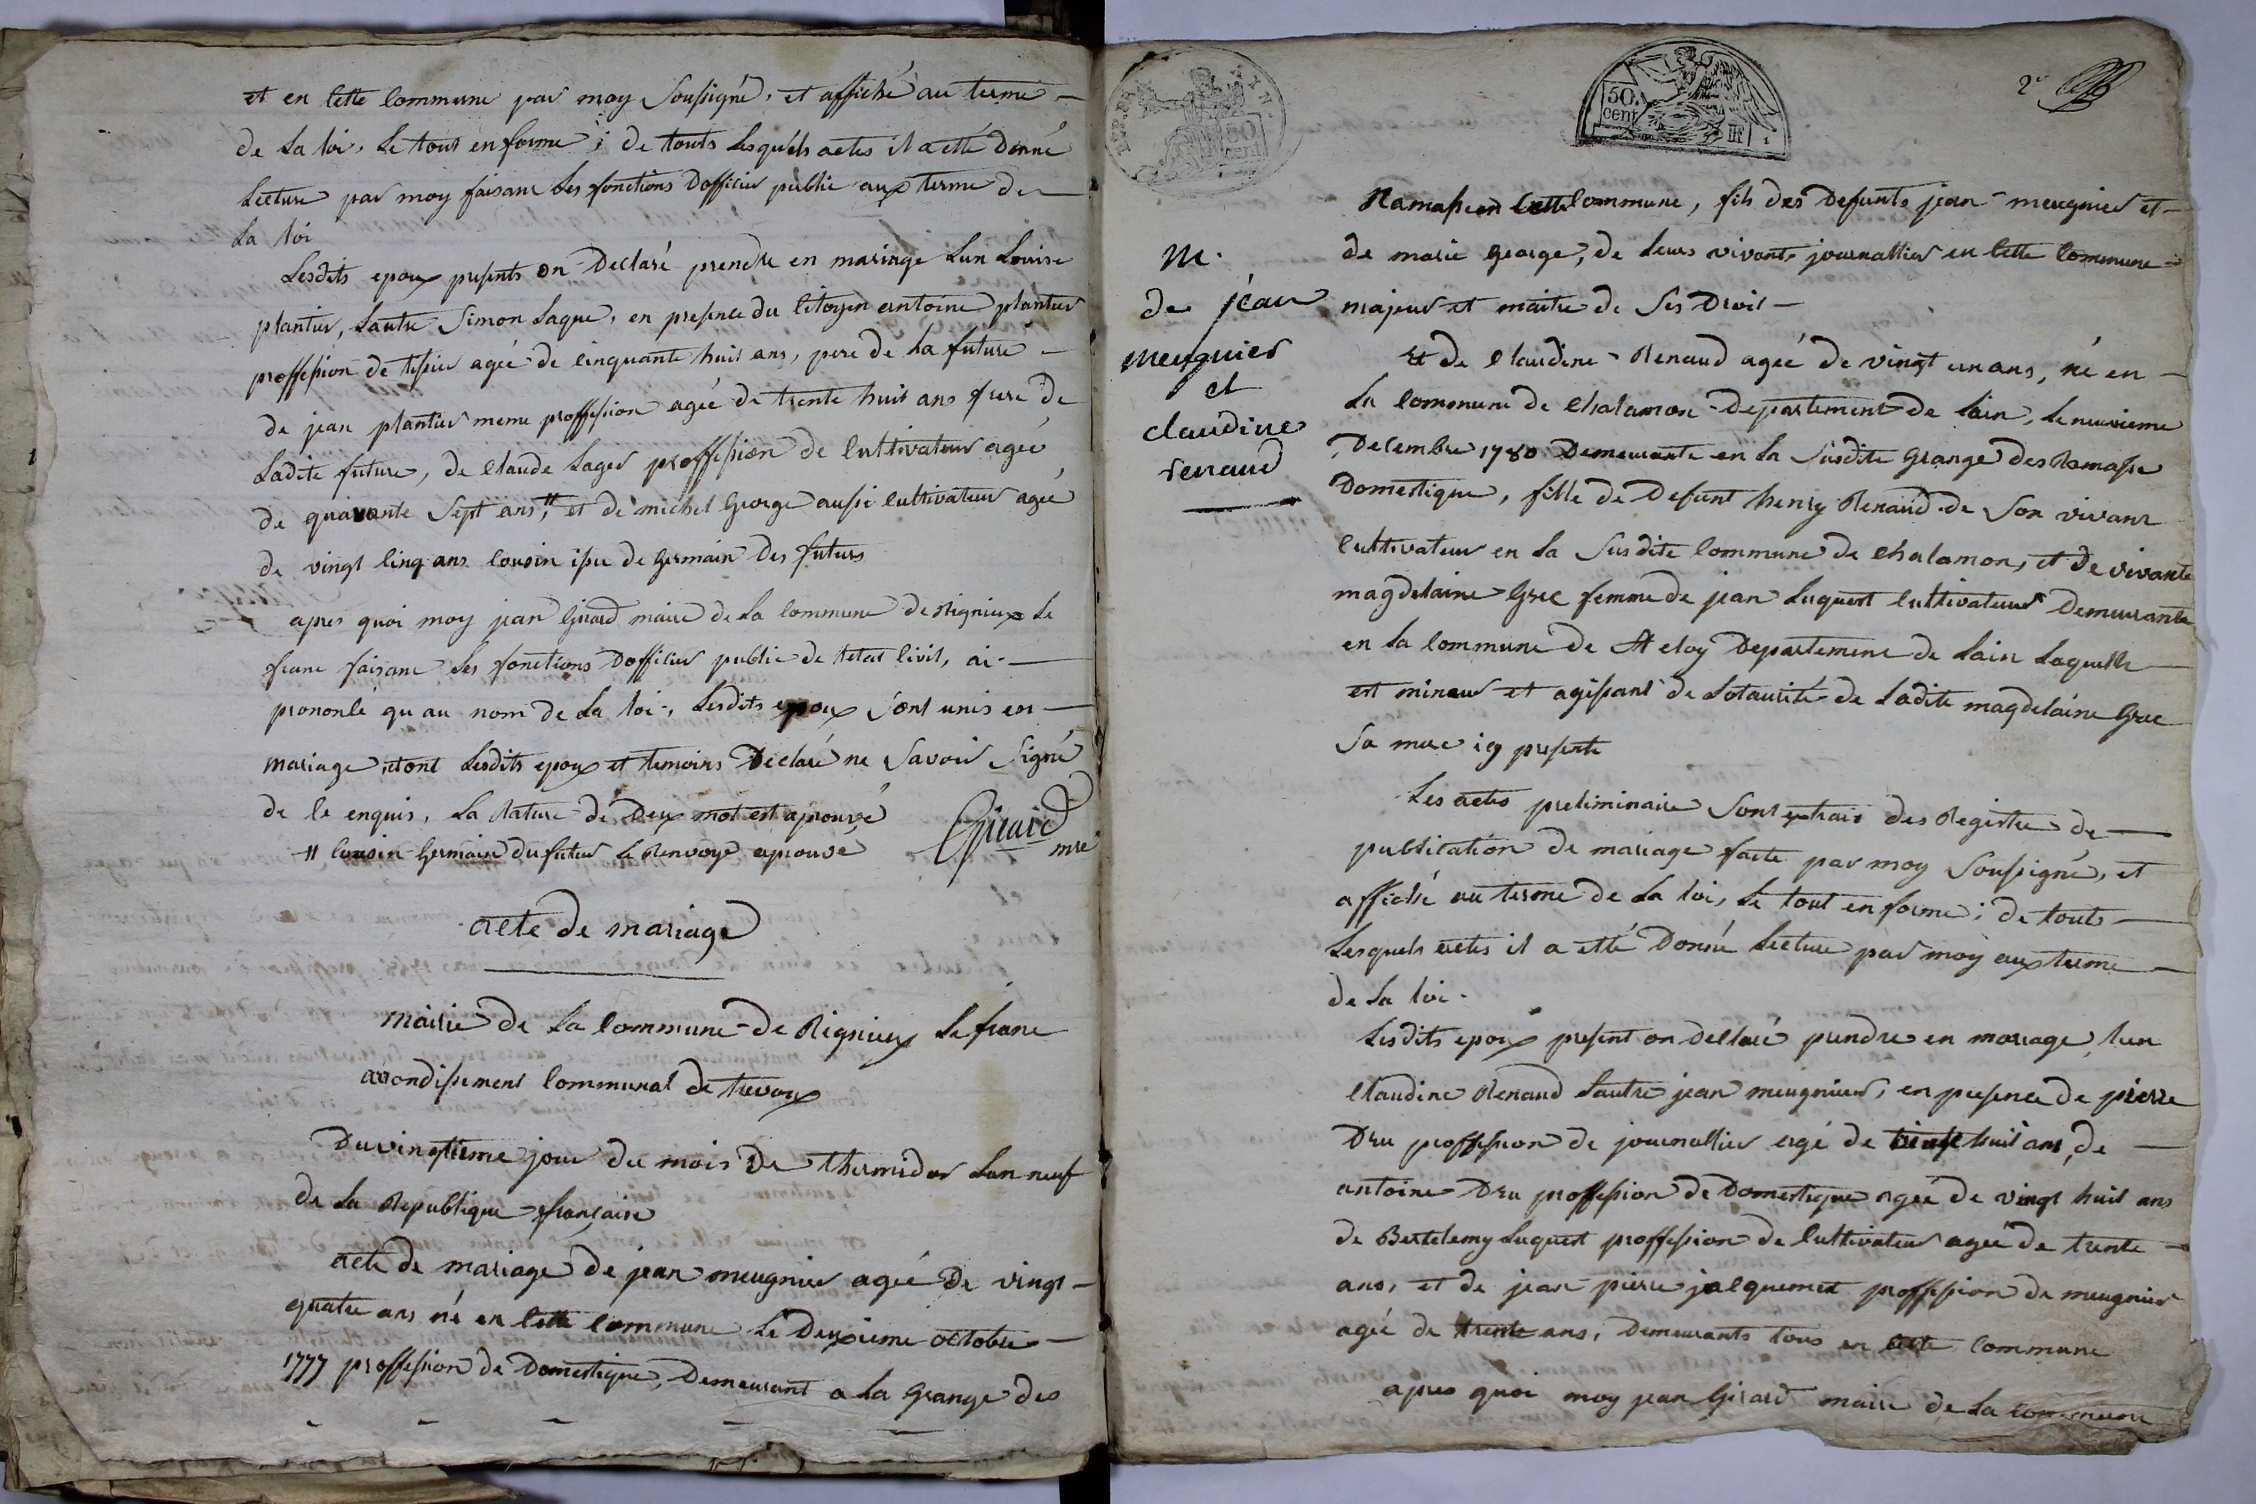 et en cette commune par moy soussigné, et affiché au terme —
de la loi, le tout en forme ; de touts lesquels actes il a etté donné
lecture par moy faisant les fonctions dofficier public aux terme de —
la loi
Lesdits epoux presents on declaré prendre en mariage lun Louise
plantier, lautre Simon Laque, en presence du citoyen antoine plantier
proffession de tissier ageé de cinquante huit ans, pere de la future —
de jean plantier meme proffession ageé de trente huit ans frere de
ladite future, de claude Lager proffession de cultivateur ageé
de quarante sept ans, " et de michel George aussi cultivateur ageé
de vingt cinq ans cousin issu de germain des futurs
apres quoi moy jean Girard maire de la commune de Rignieux le
franc faisant les fonctions dofficier public de letat civil, ai —
prononcé qu au nom de la loi, lesdits epoux sont unis en —
mariage, etont lesdits epoux et temoins declaré ne savoir signé
de ce enquis, la rature de deux mot est aprouvé
" cousin germain du futur le renvoye aprouvé
Girard
mre
acte de mariage
mairie de la commune de Rignieux le franc
arrondissement communal de trevoux
Du vingtieme jour du mois de thermidor lan neuf
de la Republique française
acte de mariage de jean meugnier ageé de vingt —
quatre ans né en cette commune le deuxieme octobre —
1777 proffession de domestique, demeurant a la grange des
REP. FRA.
50
cent
50
cent
2e
M.
de jéan
meugnier
et
claudine
renaud
Ramasse en cette commune, fils des defunts jean meugnier et —
de marie george, de leurs vivants journallier en cette commune —
majeur et maitre de ses droit —
Et de claudine Renaud ageé de vingt un ans, né en —
la commune de chalamon departement de lain, le neuvieme
decembre 1780 demeurante en la susdite grange des Ramasse
domestique, fille de defunt henry Renaud de son vivant
cultivateur en la susdite commune de chalamon, et de vivante
magdelaine Grec femme de jean Luquest cultivateur demeurante
en la commune de st eloy departement de lain laquelle —
est mineur et agissant de lotaurité de ladite magdelaine Grec
sa mere icy presente
Les actes preliminaire sont extrait des Registre de —
publication de mariage faite par moy soussigné, et
affiché au terme de la loi, le tout en forme ; de touts —
lesquels actes il a etté donné lecture par moy aux terme —
de la loi.
Lesdits epoux present on declaré prendre en mariage, lun
claudine Renaud lautre jean meugnier, en presence de pierre
Dru proffession de journallier agé de huit ans, de —
antoine Dru proffession de domestique ageé de vingt huit ans
de Bertelemy Luquest proffession de cultivateur ageé de trente —
ans, et de jean pierre jacquemet proffession de meugnier
ageé de trente ans, demeurants tous en cette commune
apres quoi moy jean Girard maire de la commune